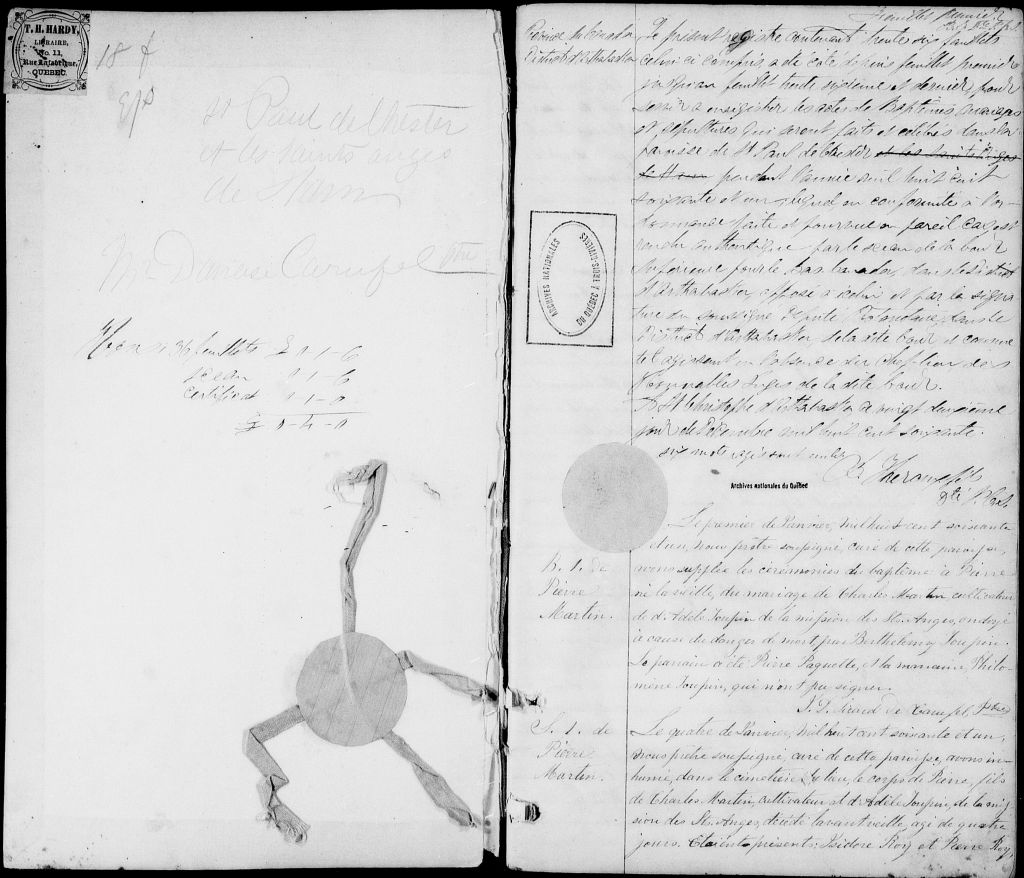 T. H. HARDY,
LIBRAIRE,
No. 11,
Rue Lafabrique,
QUEBEC.
18 f
St Paul de Chester
et les saints anges
de Ham
Mr Ptre
36 feuillets £ 0-1-6
sceau 0-1-6
certificat 0-1-0
£ 0-4-0
feuillet premier
Province du Canada
District d'Arthabaska
Le présent registre contenant trente six feuillets
celui ci compris a été coté depuis feuillet premier
jusqu'au feuillet trente sixième et dernier, pour
servir à enregistrer les actes de Baptêmes, mariages
et sépultures qui seront faits et célébrés dans la
paroisse de St Paul de Chester et les Saints Anges
de Ham pendant l'année mil huit cent
soixante et un, lequel en conformité à l'or-
donnance faite et pourvue en pareil cas, est
rendu authentique par le sceau de la Cour
Supérieure pour le Bas Canada, dans le District
d'Arthabaska, apposé à celui et par la signa
ture du soussigné Député Protonotaire, dans le
District d'Arthabaska, de la dite Cour et comme
tel agissant en l'absence du chef lieu des
Honorables Juges de la dite Cour.
A St Christophe d'Arthabaska ce vingt deuxième
jour de Décembre mil huit cent soixante.
six mots
ARCHIVES NATIONALES
DU QUÉBEC À TROIS-RIVIÈRES
Archives nationales du Québec
B. 1. de
Pierre
Martin.
Le premier de Janvier, mil huit cent soixante
et un, nous prêtre soussigné, curé de cette paroisse,
avons supplée les cérémonies du baptême à Pierre
né la veille, du mariage de Charles Martin, cultivateur
et d'Adèle Toupin de la mission des Sts. Anges, ondoyé
à cause du danger de mort par Barthélemy Toupin.
Le parrain a été Pierre Paquette, et la marraine Philo-
mène Toupin, qui n'ont pu signer.
J. D. Sicard de Carufel, Ptre
S. 1. de
Pierre
Martin.
Le quatre de Janvier, mil huit cent soixante et un,
nous prêtre soussigné, curé de cette paroisse, avons in-
humé, dans le cimetière du lieu, le corps de Pierre, fils
de Charles Martin, cultivateur, et d'Adèle Toupin, de la mis
sion des Sts. Anges, décédé l'avant veille, agé de quatre
jours. Etaient présents: Isidore Roy et Pierre Roy,